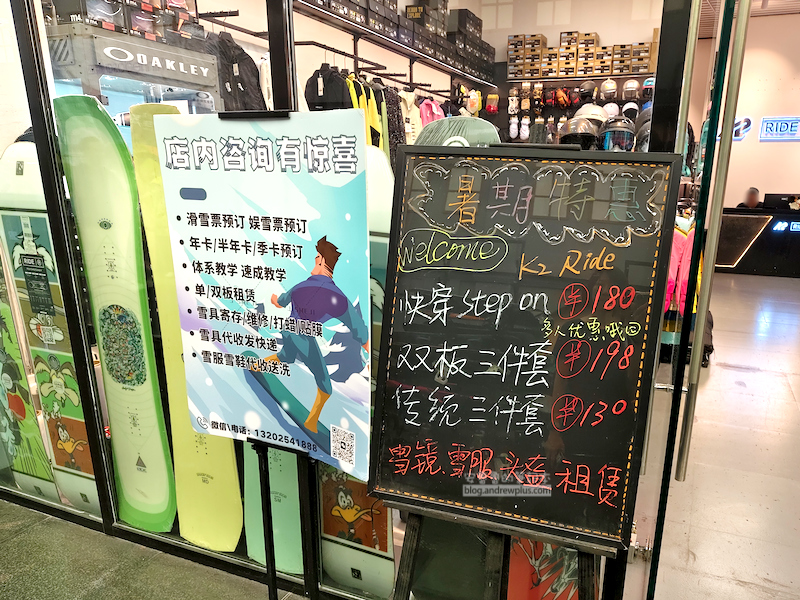 OAKLEY
RIDE
店内咨询有惊喜
• 滑雪票预订 娱雪票预订
• 年卡/半年卡/季卡预订
• 体系教学 速成教学
• 单/双板租赁
• 雪具寄存/维修/打蜡/贴膜
• 雪具代收发快递
• 雪服雪鞋代收送洗
微信\电话：13202541888
暑期特惠
Welcome
K2 Ride
快穿 Step on ¥180
多人优惠哦
双板三件套 ¥198
传统三件套 ¥130
雪镜 雪服 头盔 租赁
blog.andrewplus.com
RIDE